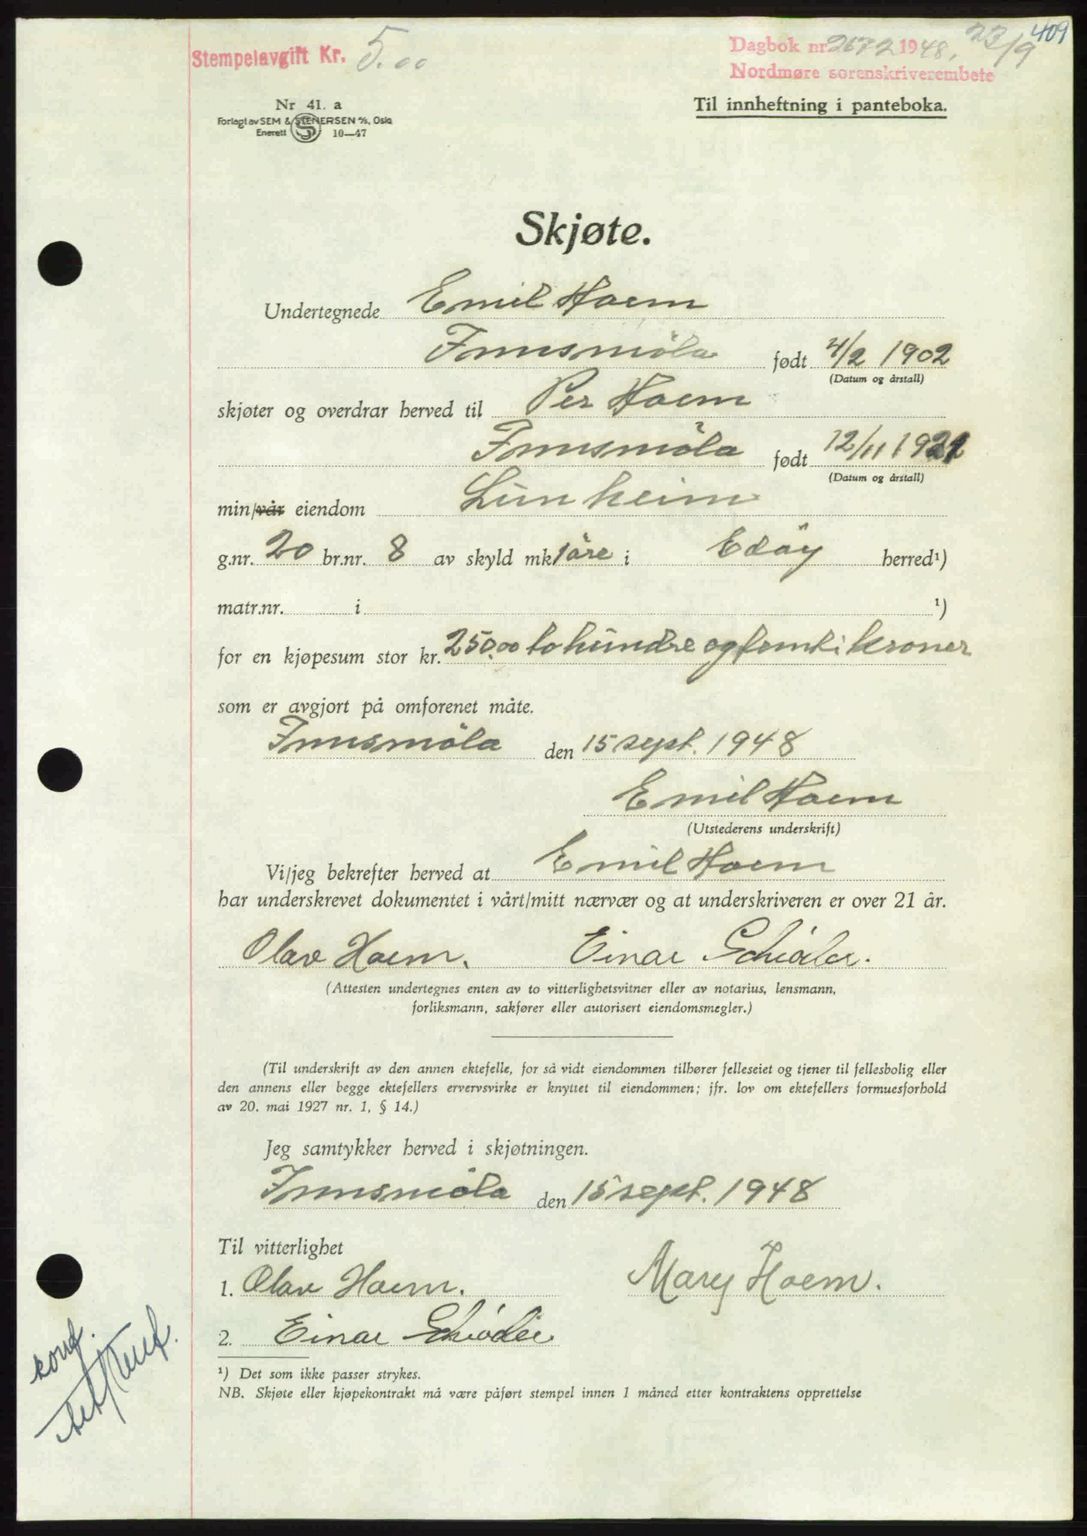 409
Stempelavgift Kr. 5.00
Dagbok nr 2672 1948, 23/9
Nordmøre sorenskriverembete
Nr 41. a
Forlagt av SEM & STENERSEN A/S, Oslo
Enerett S 10—47
Til innheftning i panteboka.
Skjøte.
Undertegnede Emil Hoem
Innsmöla født 4/2 1902
(Datum og årstall)
skjøter og overdrar herved til Per Hoem
Innsmöla født 12/11 1921
(Datum og årstall)
min/vår eiendom Lunheim
g.nr. 20 br.nr. 8 av skyld mk 1 øre i Edøy herred¹)
matr.nr. i ¹)
for en kjøpesum stor kr. 250.00 to hundre og femti kroner
som er avgjort på omforenet måte.
Innsmöla den 15 sept. 1948
Emil Hoem
(Utstederens underskrift)
Vi/jeg bekrefter herved at Emil Hoem
har underskrevet dokumentet i vårt/mitt nærvær og at underskriveren er over 21 år.
Olav Hoem. Einar Schiöler.
(Attesten undertegnes enten av to vitterlighetsvitner eller av notarius, lensmann,
forliksmann, sakfører eller autorisert eiendomsmegler.)
(Til underskrift av den annen ektefelle, for så vidt eiendommen tilhører felleseiet og tjener til fellesbolig eller
den annens eller begge ektefellers ervervsvirke er knyttet til eiendommen; jfr. lov om ektefellers formuesforhold
av 20. mai 1927 nr. 1, § 14.)
Jeg samtykker herved i skjøtningen.
Innsmöla den 15 sept. 1948
Til vitterlighet
1. Olav Hoem. Mary Hoem.
2. Einar Schiöler
¹) Det som ikke passer strykes.
NB. Skjøte eller kjøpekontrakt må være påført stempel innen 1 måned etter kontraktens opprettelse
konf.